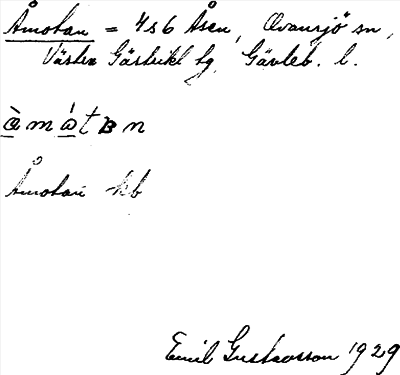 Åmotan = 4s6 Åsen, Ovansjö sn,
Västra Gästrikl tg, Gävleb. l.
àmótʙn
Åmotan kb
Emil Gustavsson 1929